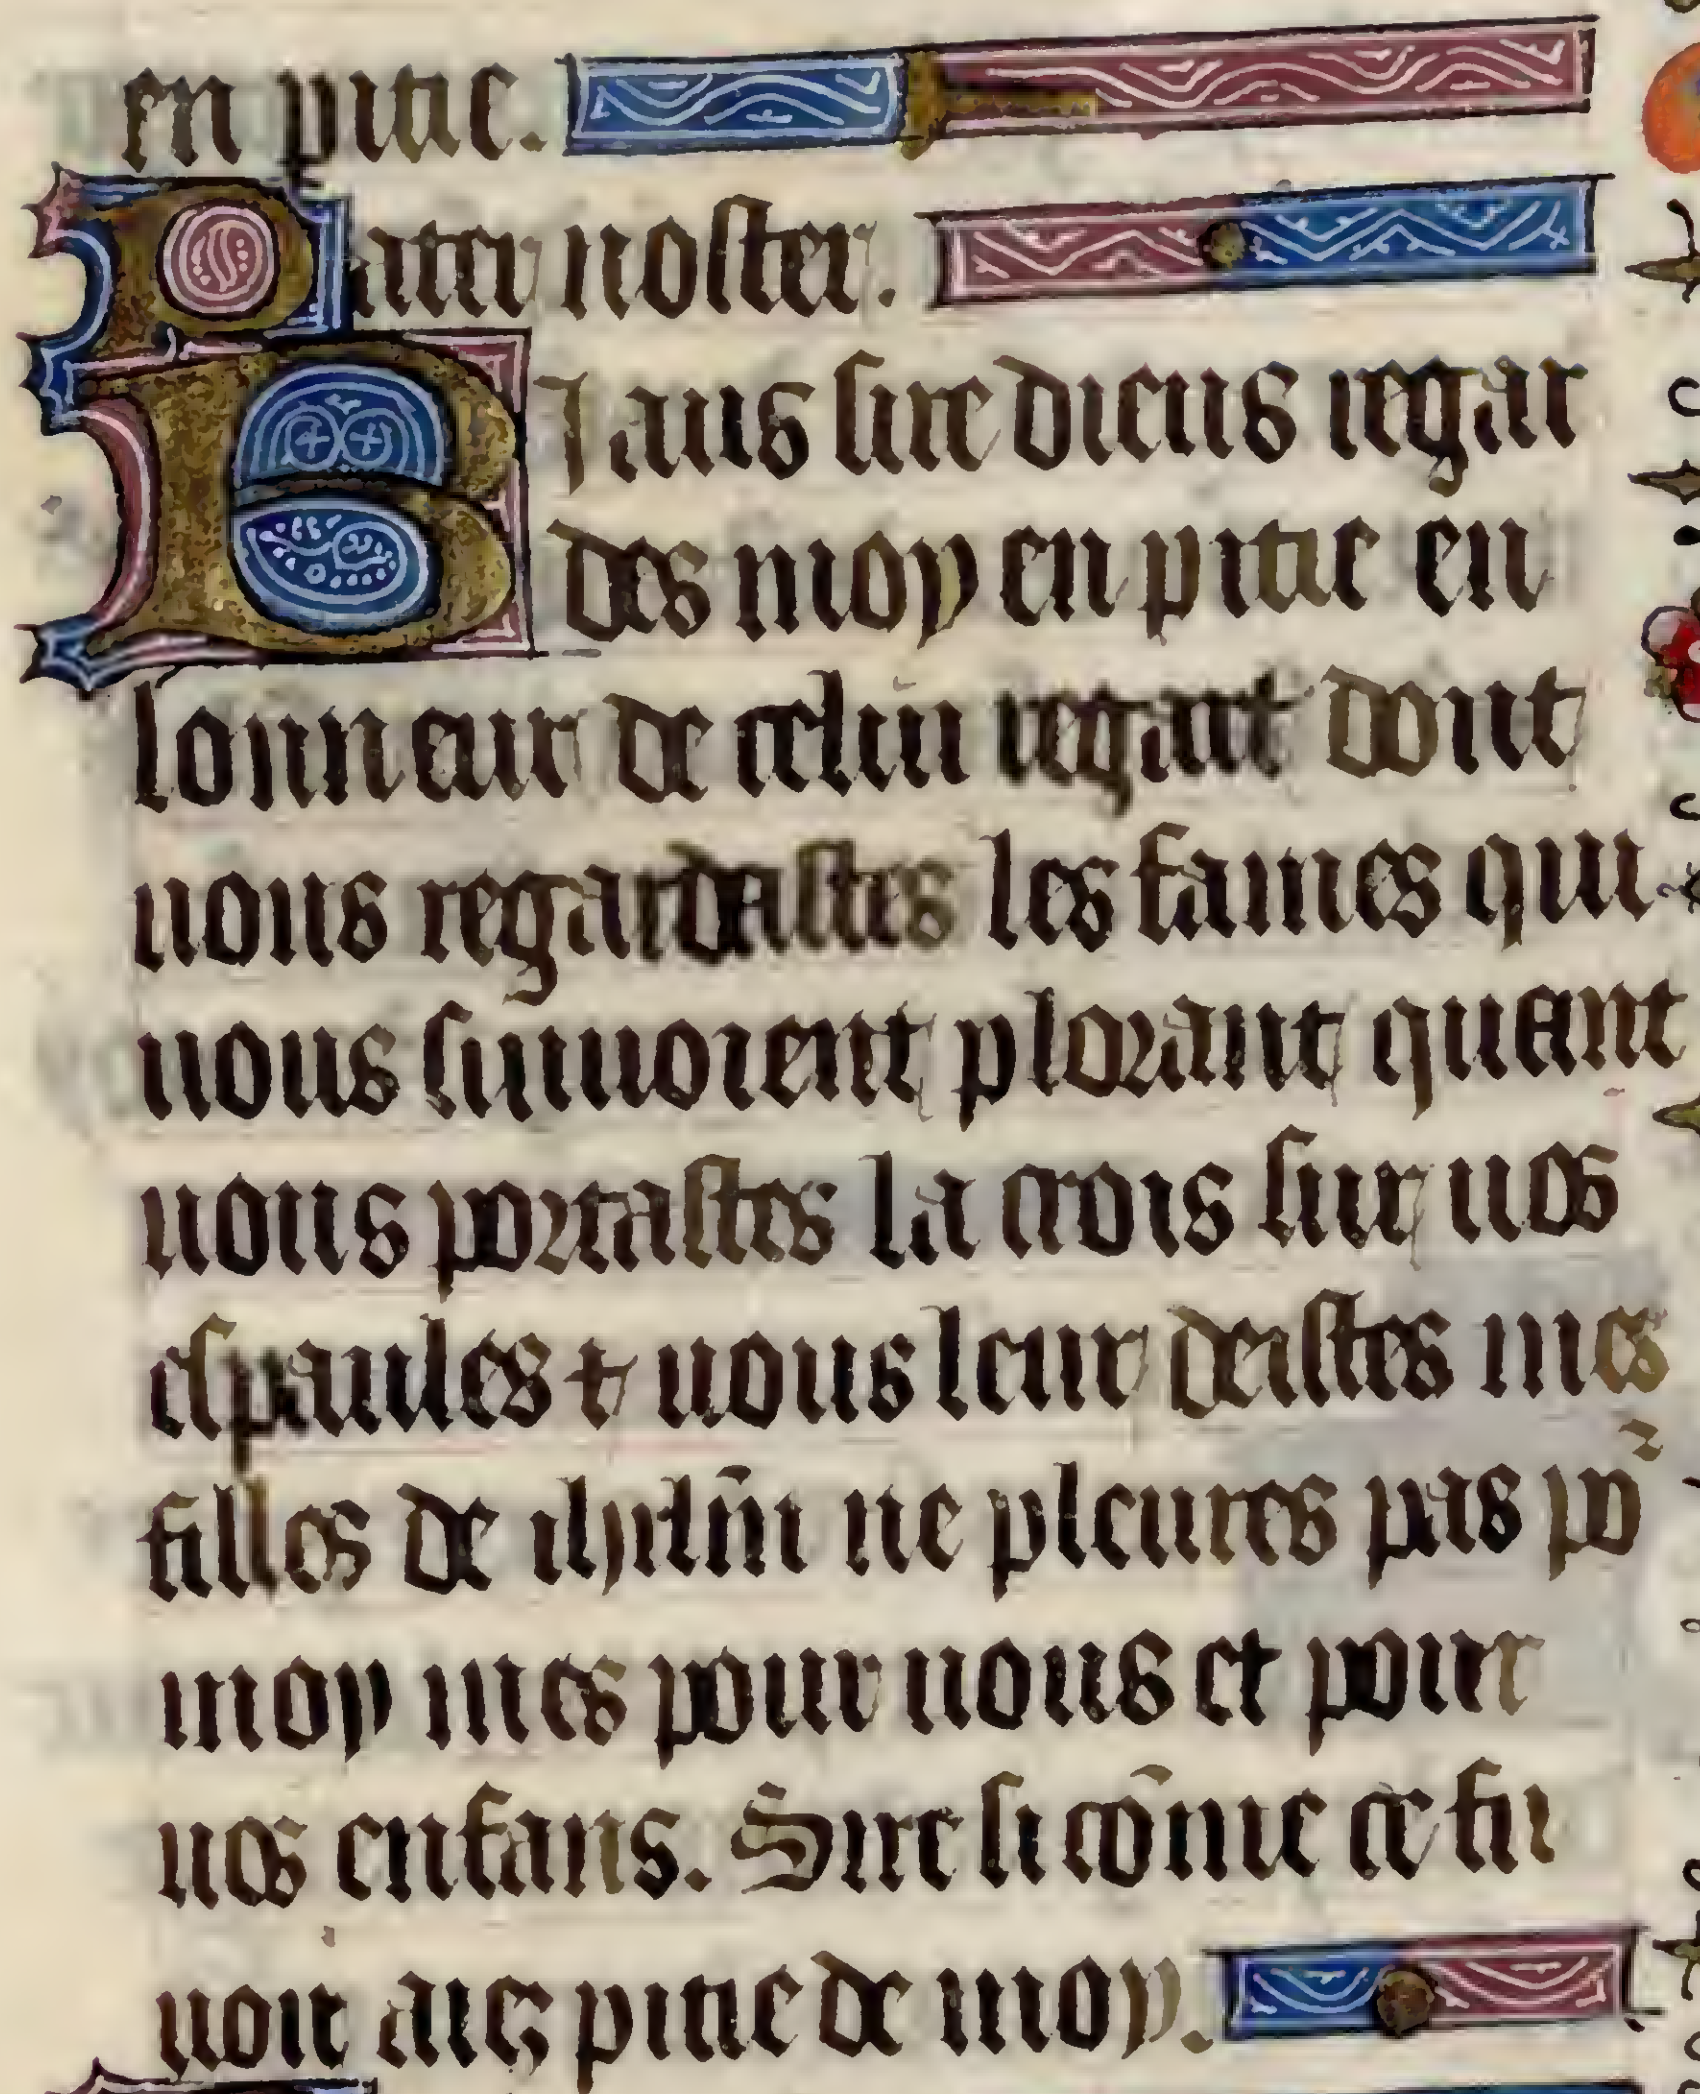 en pitie.
Pater noster.
BIaus sire dieus regar
des moy en pitie en
lonneur de celui regart dont
uous regardastes les fames qui
uous siuuoient plorant quant
uous portastes la crois sur uos
espaules ⁊ uous leur deistes mes
filles de ihrlm̄ ne pleures pas po᷑
moy mes pour uous et pour
uos enfans. Sire si cōme ce fu
uoir aies pitie de moy.